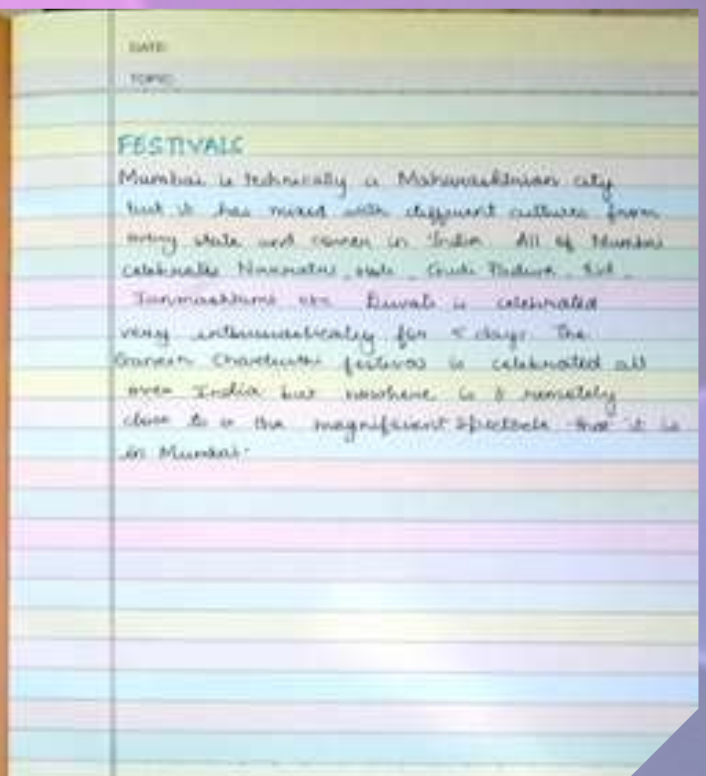 DATE:
TOPIC:
FESTIVALS
Mumbai is technically a Maharashtrian city
but it has mixed with different cultures from
every state and corner in India. All of Mumbai
celebrates Navratri, Holi, Gudi Padwa, Eid,
Janmashtami etc. Diwali is celebrated
very enthusiastically for 5 days. The
Ganesh Chaturthi festival is celebrated all
over India but nowhere is remotely
close to the magnificent spectacle that it is
in Mumbai.